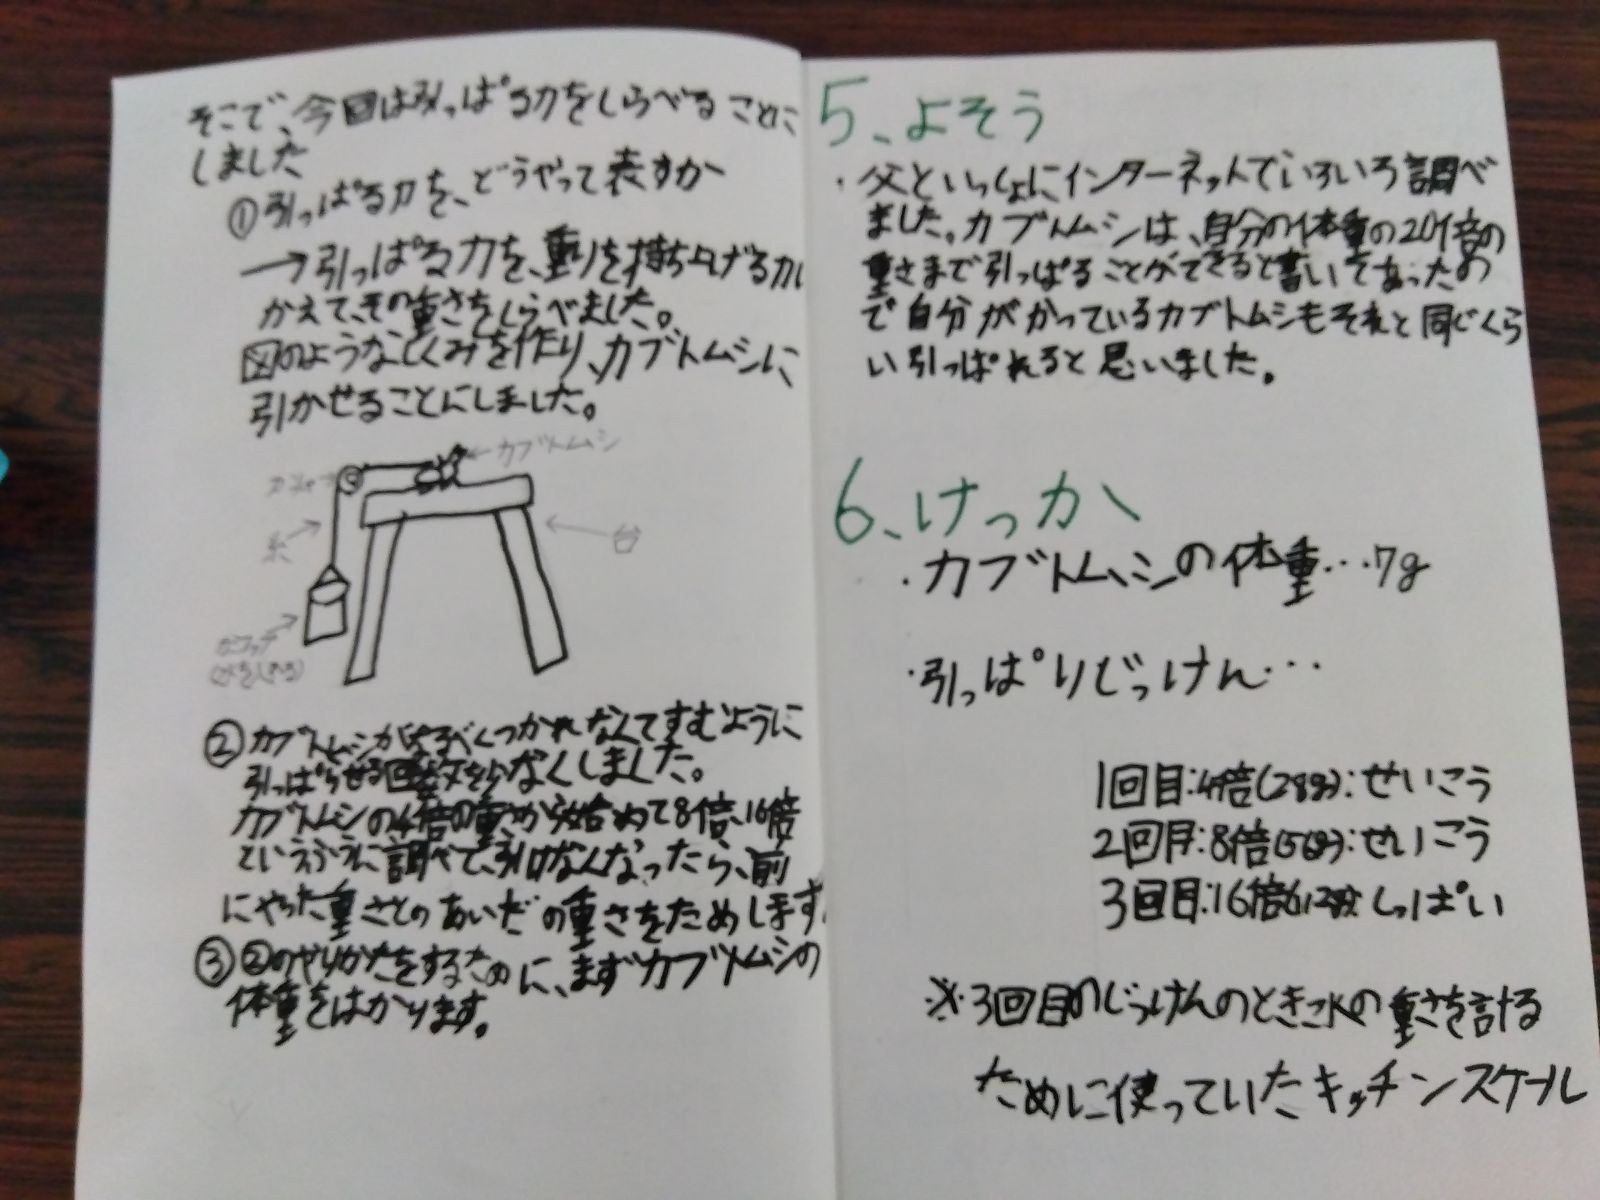 そこで、今回は引っぱる力をしらべることに
しました
①引っぱる力を、どうやって表すか
→引っぱる力を、重りを持ち上げる力に
かえて、その重さをしらべました。
図のようなしくみを作り、カブトムシに
引かせることにしました。
←カブトムシ
糸→
←台
②カブトムシがなるべくつかれなくてすむように
引っぱらせる回数を少なくしました。
カブトムシの4倍の重さから始めて8倍、16倍
というふうに調べて、引けなくなったら、前
にやった重さとのあいだの重さをためします。
③②のやりかたをするために、まずカブトムシの
体重をはかります。
5、よそう
・父といっしょにインターネットでいろいろ調べ
ました。カブトムシは、自分の体重の20倍の
重さまで引っぱることができると書いてあったの
で自分がかっているカブトムシもそれと同じくら
い引っぱれると思いました。
6、けっか
・カブトムシの体重…7g
・引っぱりじっけん…
1回目:4倍(28g):せいこう
2回目:8倍(56g):せいこう
3回目:16倍(112g):しっぱい
※3回目のじっけんのときに水の重さを計る
ために使っていたキッチンスケール